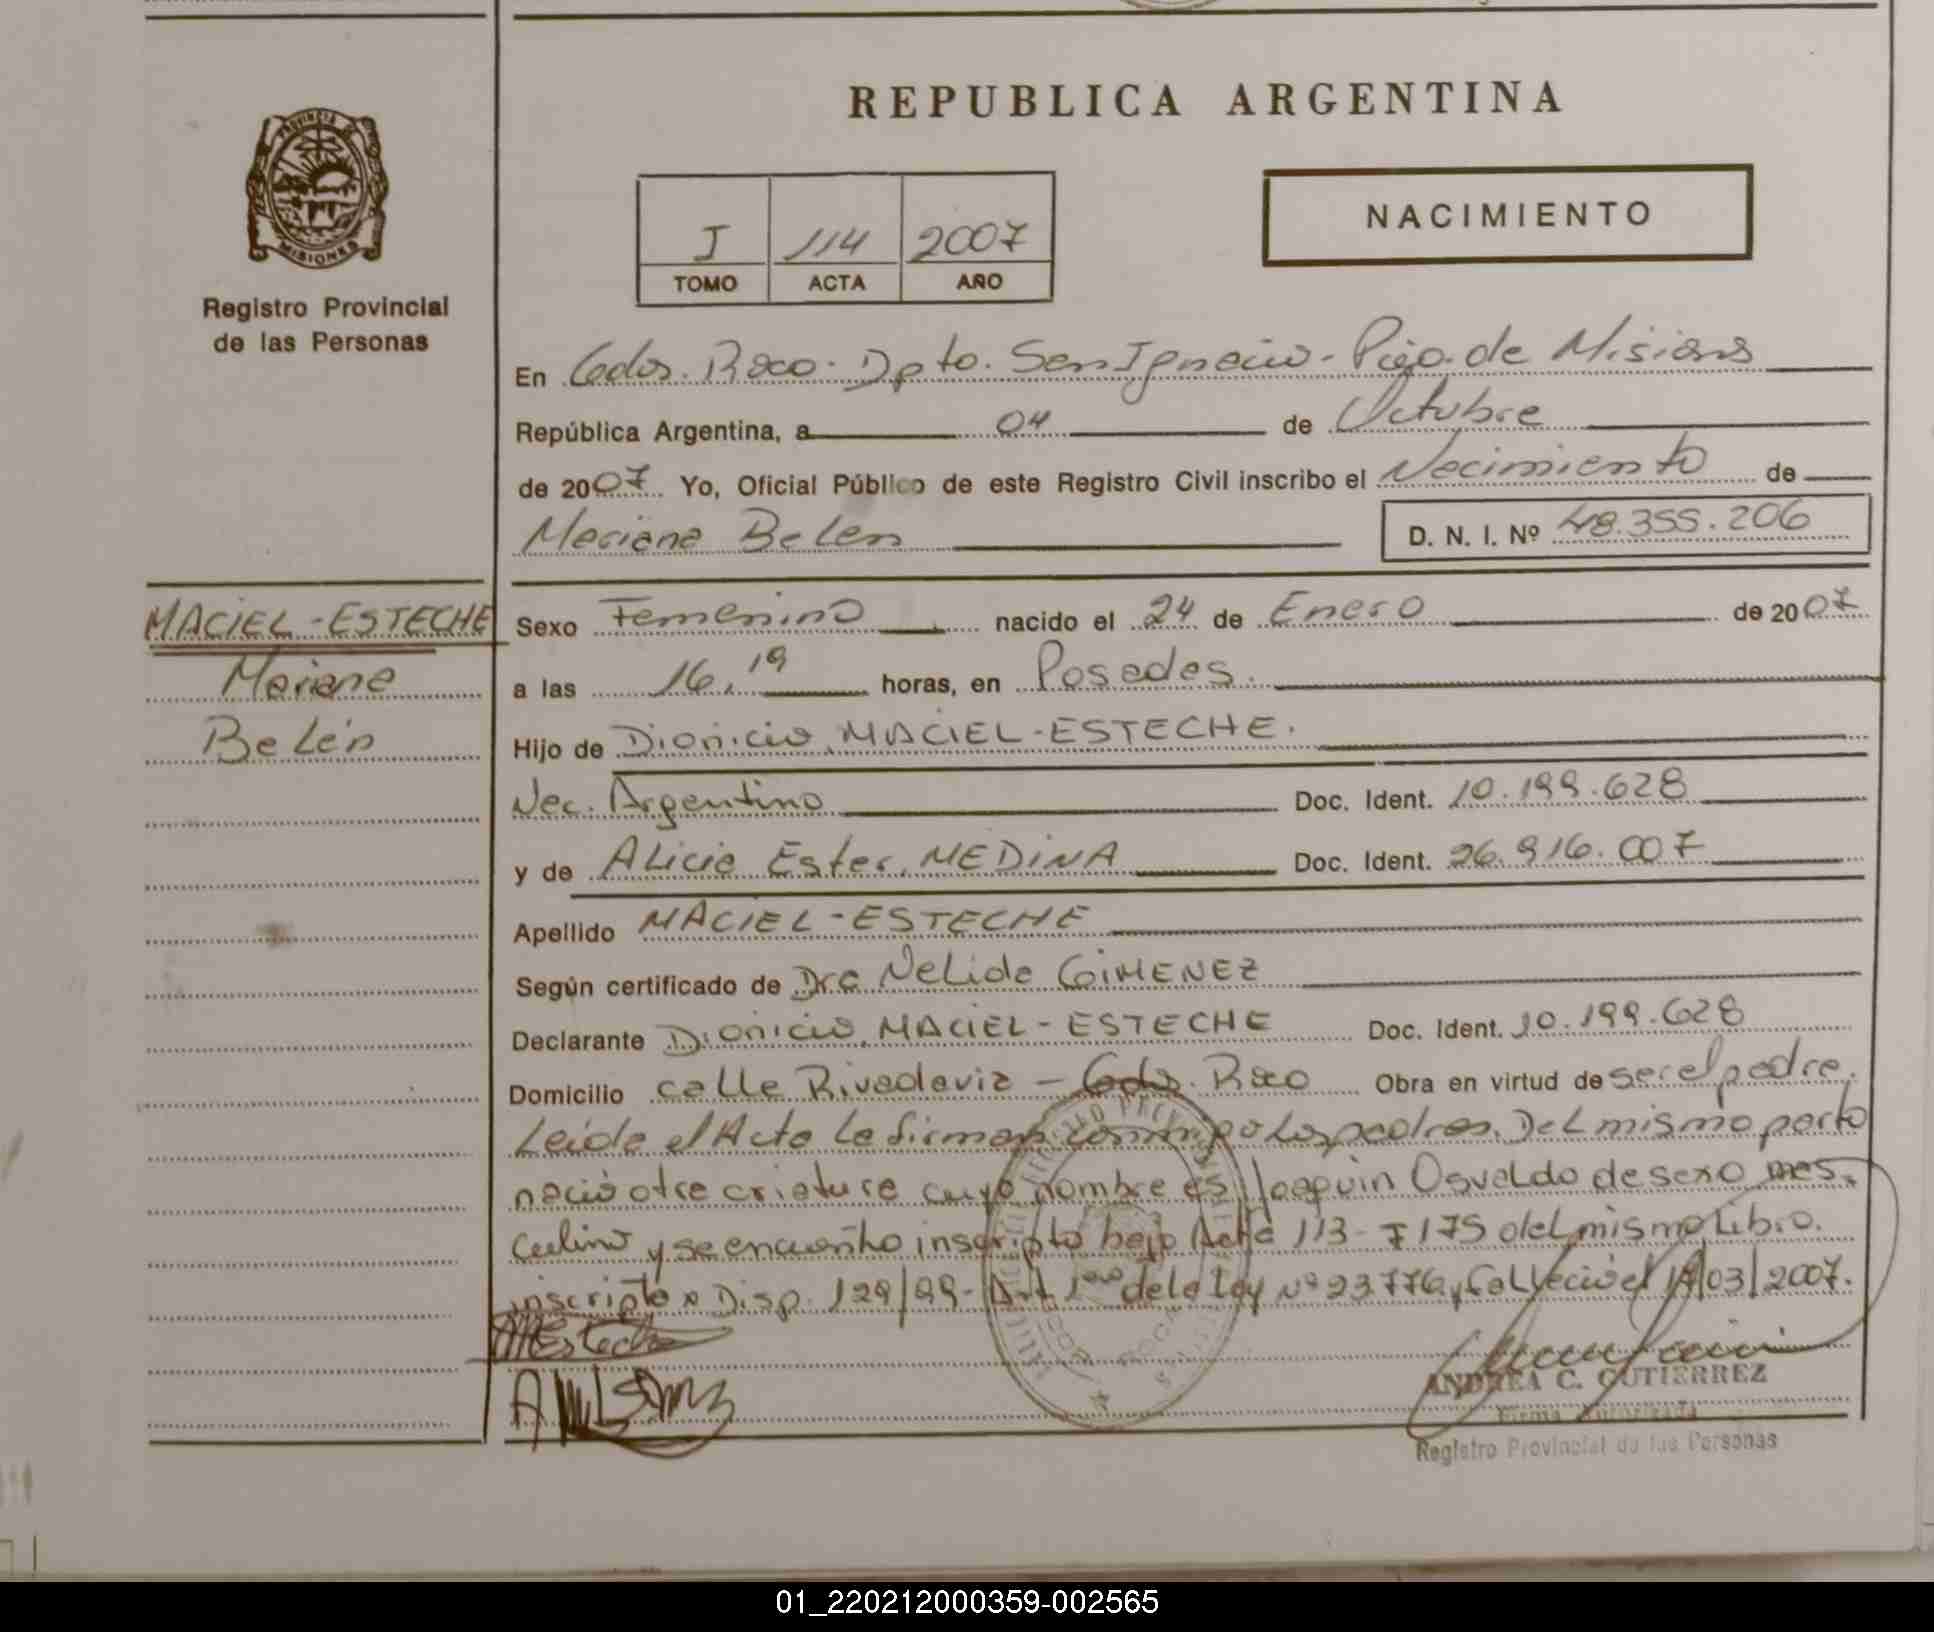 REPUBLICA ARGENTINA
PROVINCIA DE
MISIONES
Registro Provincial
de las Personas
I 114 2007
TOMO ACTA AÑO
NACIMIENTO
En Gdor. Roca. Dpto. San Ignacio. Pcia. de Misiones
República Argentina, a 04 de Octubre
de 2007. Yo, Oficial Público de este Registro Civil inscribo el Nacimiento de
Mariana Belen D. N. I. Nº 48.355.206
MACIEL-ESTECHE
Mariana
Belén
Sexo Femenino nacido el 24 de Enero de 2007
a las 16,19 horas, en Posadas.
Hijo de Dionicio MACIEL-ESTECHE.
Nac. Argentino Doc. Ident. 10.199.628
y de Alicia Ester MEDINA Doc. Ident. 26.916.007
Apellido MACIEL-ESTECHE
Según certificado de Dra Nelida GIMENEZ
Declarante Dionicio MACIEL-ESTECHE Doc. Ident. 10.199.628
Domicilio calle Rivadavia - Gdor. Roca Obra en virtud de ser el padre.
Leida el Acta la firman conmigo los padres. Del mismo parto
nació otra criatura cuyo nombre es Joaquin Osvaldo de sexo mas-
culino y se encuentra inscripto bajo Acta 113- F 175 del mismo Libro.
inscripto x Disp. 129/99- Art 1ero de la Ley Nº 23776 y falleció el 19/03/2007.
ANDREA C. GUTIERREZ
Firma Autorizada
Registro Provincial de las Personas
01_220212000359-002565